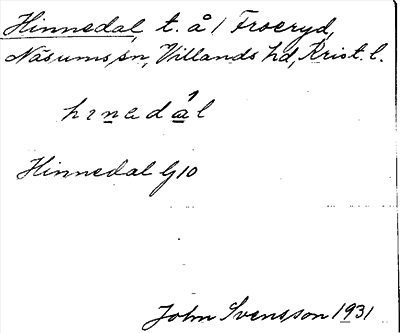 Hinnedal, t. å 1 Froeryd,
Näsums sn, Villands hd, Krist. l.
hɪnadál
Hinnedal G10
John Svensson 1931